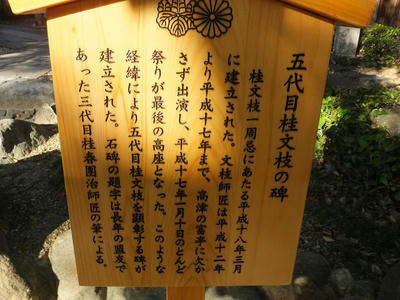 五代目桂文枝の碑
桂文枝一周忌にあたる平成十八年三月
に建立された。文枝師匠は平成十二年
より平成十七年まで、高津の富亭に欠か
さず出演し、平成十七年一月十日のとんど
祭りが最後の高座となった。このような
経緯により五代目桂文枝を顕彰する碑が
建立された。石碑の題字は長年の盟友で
あった三代目桂春團治師匠の筆による。